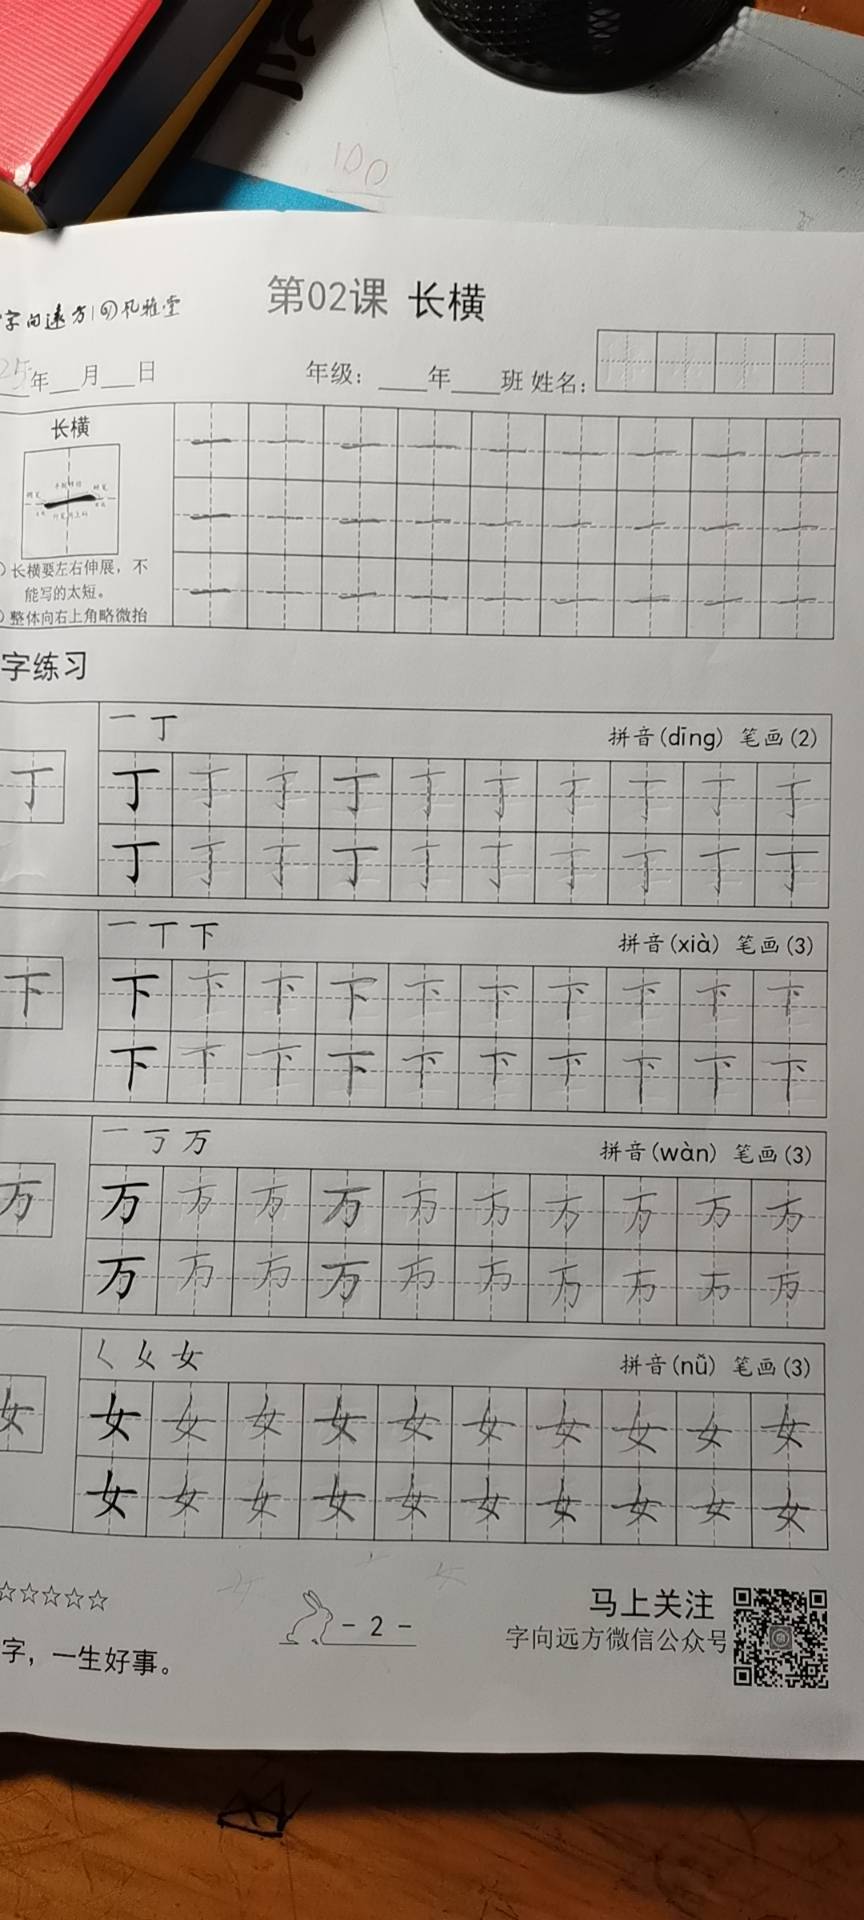 100
第02课 长横
字向远方|回风雅堂
25年___月___日 年级：____年____班 姓名：
长横
长横要左右伸展，不
能写的太短。
整体向右上角略微抬
字练习
一 丁 拼音(dīng) 笔画(2)
丁 丁 丁 丁 丁 丁 丁 丁 丁 丁 丁
丁 丁 丁 丁 丁 丁 丁 丁 丁 丁
一 丅 下 拼音(xià) 笔画(3)
下 下 下 下 下 下 下 下 下 下 下
下 下 下 下 下 下 下 下 下 下
一 丂 万 拼音(wàn) 笔画(3)
万 万 万 万 万 万 万 万 万 万 万
万 万 万 万 万 万 万 万 万 万
く 乆 女 拼音(nǚ) 笔画(3)
女 女 女 女 女 女 女 女 女 女 女
女 女 女 女 女 女 女 女 女 女
☆☆☆☆☆
字，一生好事。
- 2 -
马上关注
字向远方微信公众号